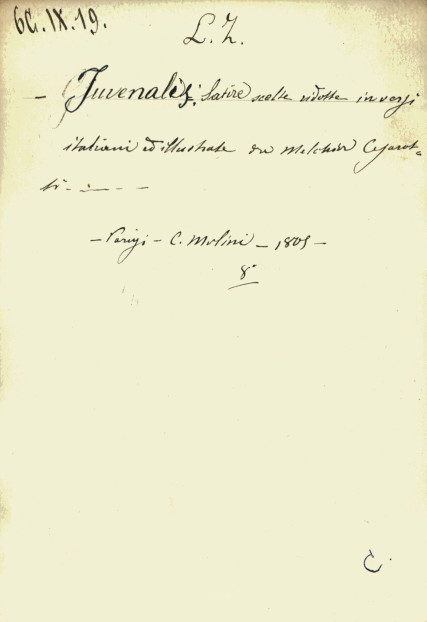 6C. IX. 19.
L. Z.
— Juvenalis. Satire scelte ridotte in versi
italiani ed illustrate da Melchior Cesarot-
ti - - - - -
— Parigi — C. Molini — 1805 —
8°
C.